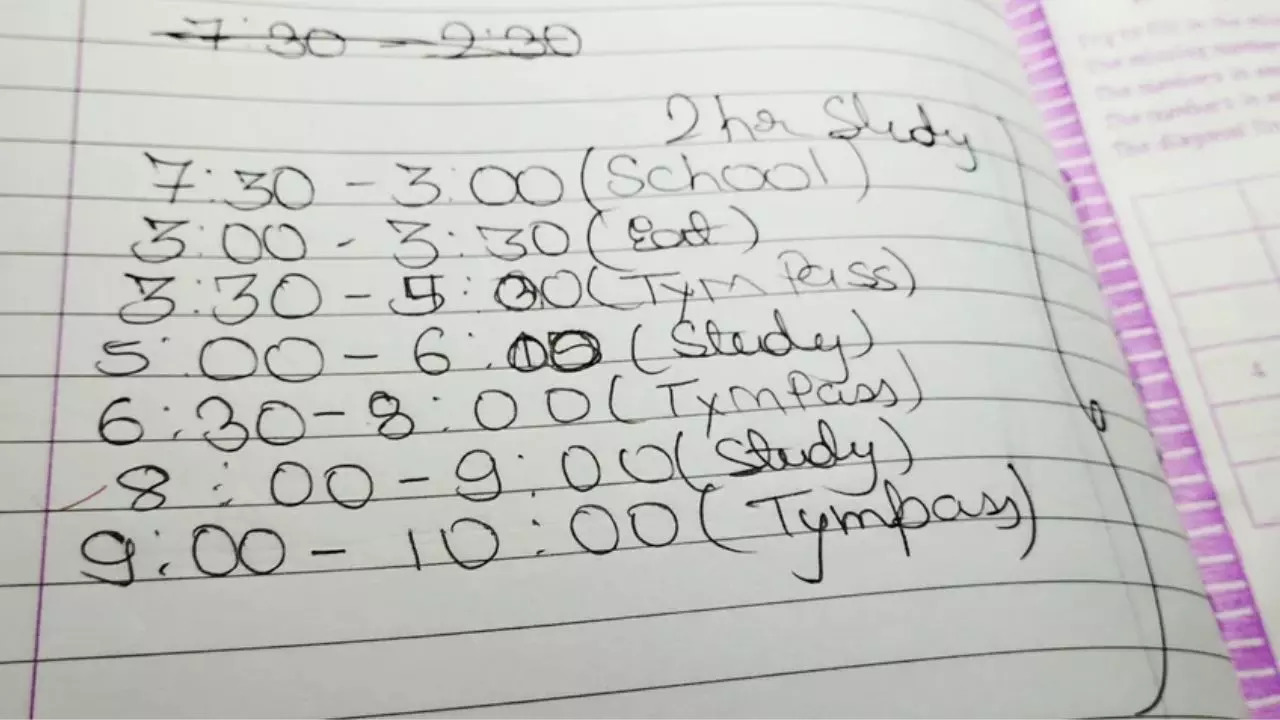 7:30 - 2:30
2 hr Study
7:30 - 3:00 (School)
3:00 - 3:30 (Eat)
3:30 - 5:00 (Tym Pass)
5:00 - 6:00 (Study)
6:30 - 8:00 (TymPass)
8:00 - 9:00 (Study)
9:00 - 10:00 (Tympass)
4